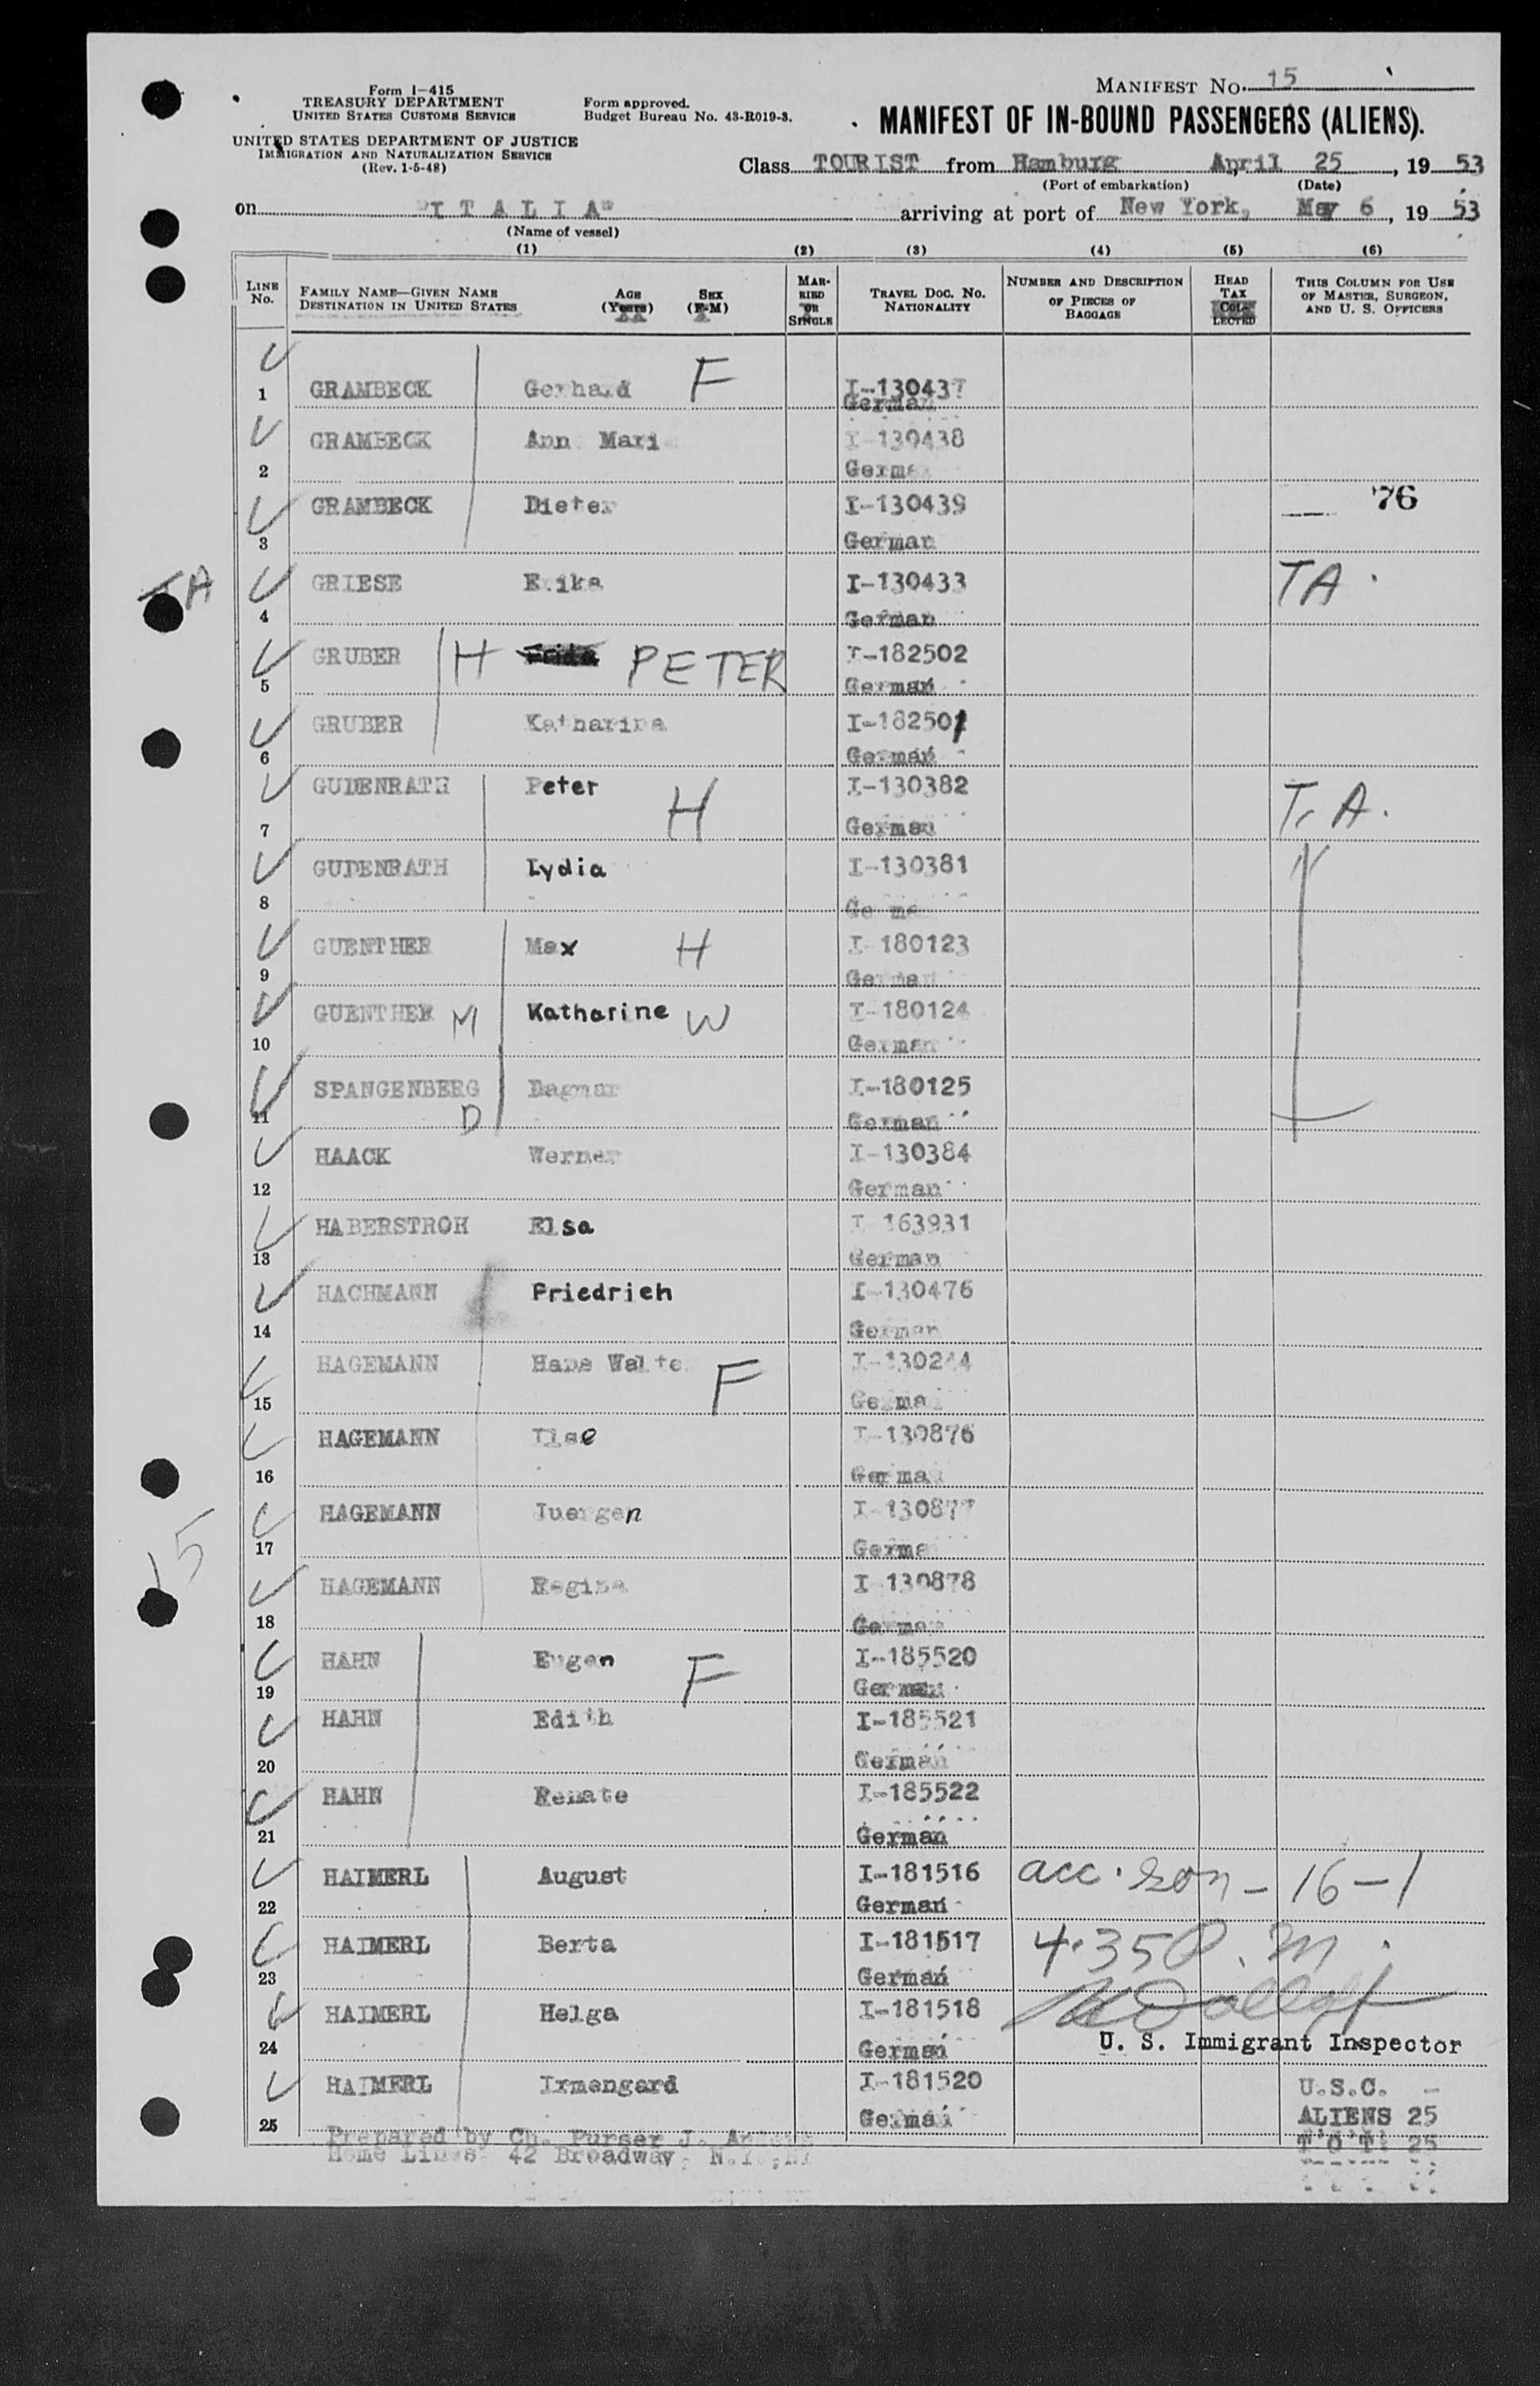 Form I-415
TREASURY DEPARTMENT
UNITED STATES CUSTOMS SERVICE
UNITED STATES DEPARTMENT OF JUSTICE
IMMIGRATION AND NATURALIZATION SERVICE
(Rev. 1-5-48)
Form approved.
Budget Bureau No. 43-R019-3.
MANIFEST NO. 15
MANIFEST OF IN-BOUND PASSENGERS (ALIENS).
Class TOURIST from Hamburg April 25, 19 53
(Port of embarkation) (Date)
on "ITALIA" arriving at port of New York, May 6, 19 53
(Name of vessel)
(1) (2) (3) (4) (5) (6)
LINE No. FAMILY NAME—GIVEN NAME DESTINATION IN UNITED STATES AGE (Years) SEX (F-M) MARRIED OR SINGLE TRAVEL DOC. NO. NATIONALITY NUMBER AND DESCRIPTION OF PIECES OF BAGGAGE HEAD TAX COLLECTED THIS COLUMN FOR USE OF MASTER, SURGEON, AND U. S. OFFICERS
1 GRAMBECK Gerhard F I-130437
German
2 GRAMBECK Ann Mari I-130438
German
3 GRAMBECK Dieter I-130439 76
German
TA 4 GRIESE Erika I-130433 TA
German
5 GRUBER H PETER I-182502
German
6 GRUBER Katharina I-182501
German
7 GUDENRATH Peter H I-130382 T. A.
German
8 GUDENRATH Lydia I-130381
German
9 GUENTHER Max H I-180123
German
10 GUENTHER M Katharine W I-180124
German
11 SPANGENBERG D Dagmar I-180125
German
12 HAACK Werner I-130384
German
13 HABERSTROH Elsa I-163931
German
14 HACHMANN Friedrich I-130476
German
15 HAGEMANN Hans Walter F I-130244
German
16 HAGEMANN Ilse I-130876
German
15
17 HAGEMANN Juergen I-130877
German
18 HAGEMANN Regina I-130878
German
19 HAHN Eugen F I-185520
German
20 HAHN Edith I-185521
German
21 HAHN Renate I-185522
German
22 HAIMERL August I-181516 acc. son - 16-1
German
23 HAIMERL Berta I-181517 4.35 P.M.
German
24 HAIMERL Helga I-181518
German U. S. Immigrant Inspector
25 HAIMERL Irmengard I-181520 U.S.C. -
German ALIENS 25
TOT: 25
Prepared by Ch. Purser J.
Home Lines 42 Broadway, N.Y.,NY